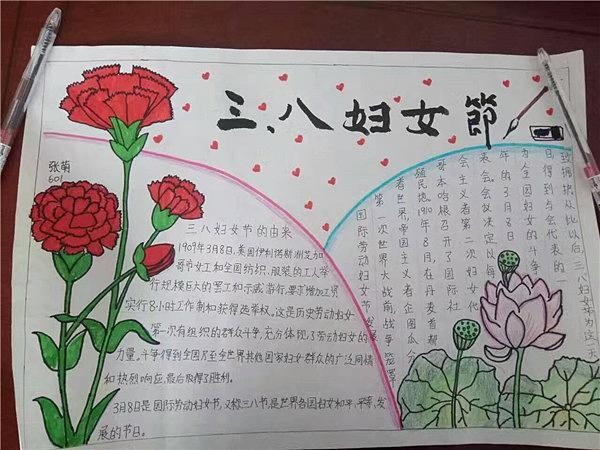 三、八妇女節
张萌
601
三八妇女节的由来
1909年3月8日,美国伊利诺斯洲芝加
哥节女工和全国纺织、服装的工人举
行规模巨大的罢工和示威游行,要求增加工资
实行8小时工作制和获得选举权,这是历史劳动妇女
第一次有组织的群众斗争,充分体现了劳动妇女的
力量,斗争得到全国乃至全世界其他国家妇女群众的广泛同情
和热烈响应,最后取得了胜利。
3月8日是国际劳动妇女节,又称三八节,是世界各国妇女和平、平等、发
展的节日。
国际劳动妇女节,发
第一次世界大战前,战争笼罩
着世界,帝国主义者企图瓜分
殖民地。1910年8月,在丹麦首都
哥本哈根召开了国际社
会主义者第二次妇女代
表会。会议决定以每
年的3月8日
为全国妇女的斗争
日得到与会代表的一
致拥护从此以后三八妇女节为这一天